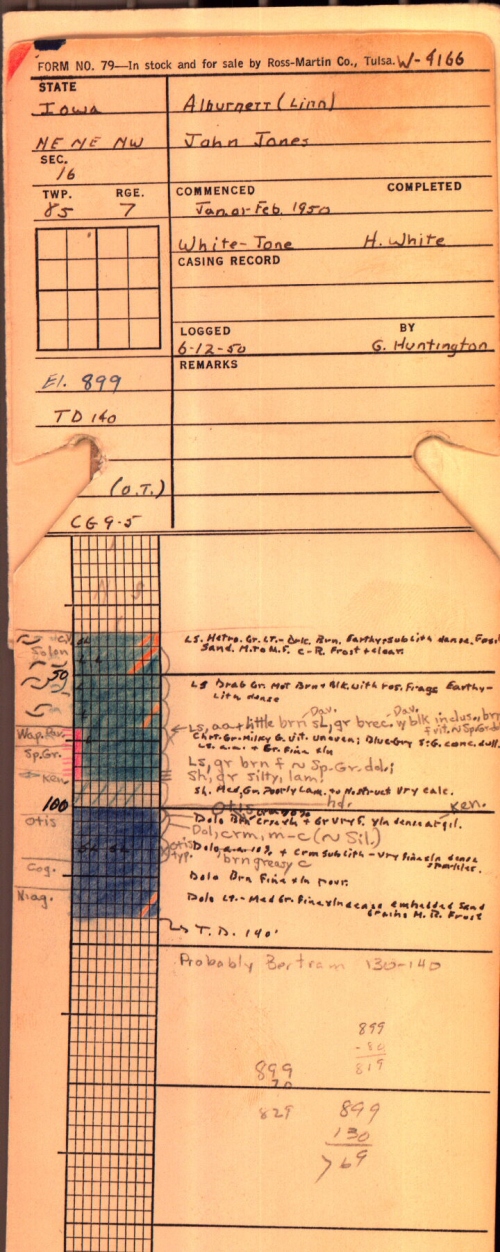 FORM NO. 79—In stock and for sale by Ross-Martin Co., Tulsa. W-4166
STATE
Iowa Alburnett (Linn)
NE NE NW John Jones
SEC.
16
TWP. RGE. COMMENCED COMPLETED
85 7 Jan or Feb. 1950
White-Tone H. White
CASING RECORD
LOGGED BY
6-12-50 G. Huntington
REMARKS
El. 899
TD 140
(O.T.)
CG 9-5
Solon
50
Wap.
Sp.Gr.
Ken
100
Otis
Cog.
Niag.
Ls. Hetro. Gr. Lt.- Brn. Earthy+sublith dense. Fos.
Sand. M. to M.F. C-R. Frost + clear.
Ls Drab Gr. Mot Brn + Blk. with Fos. Frags Earthy-
Lith dense
Dav. Dav.
Ls, aa + little brn sh, gr brec. w blk inclus, brn
Chrt. Gr. Milky G. Vit. Uneven; Blue Gry S.G. conc. dull.
Ls. a.a. + Gr. Fine xln
Ls, gr brn f ~ Sp.Gr. dol;
Sh, gr silty, lam.
Sh. Med. Gr. Poorly Lam. No Struct Vry calc.
Otis hd. Ken.
Dolo Brn Gry Vry F. Xln dense argil.
Dol, crm, m-c (~ Sil.)
Otis typ.
Dolo a.a. 10% + Crm Sublith - Vry Fine xln dense
sparkles.
brn greasy c
Dolo Brn Fine xln
Dolo Lt.- Med Gr. Fine xln dense embedded Sand
Grains M. R. Frost
T.D. 140'
Probably Bertram 130-140
899
- 80
819
899
70
829
899
130
769